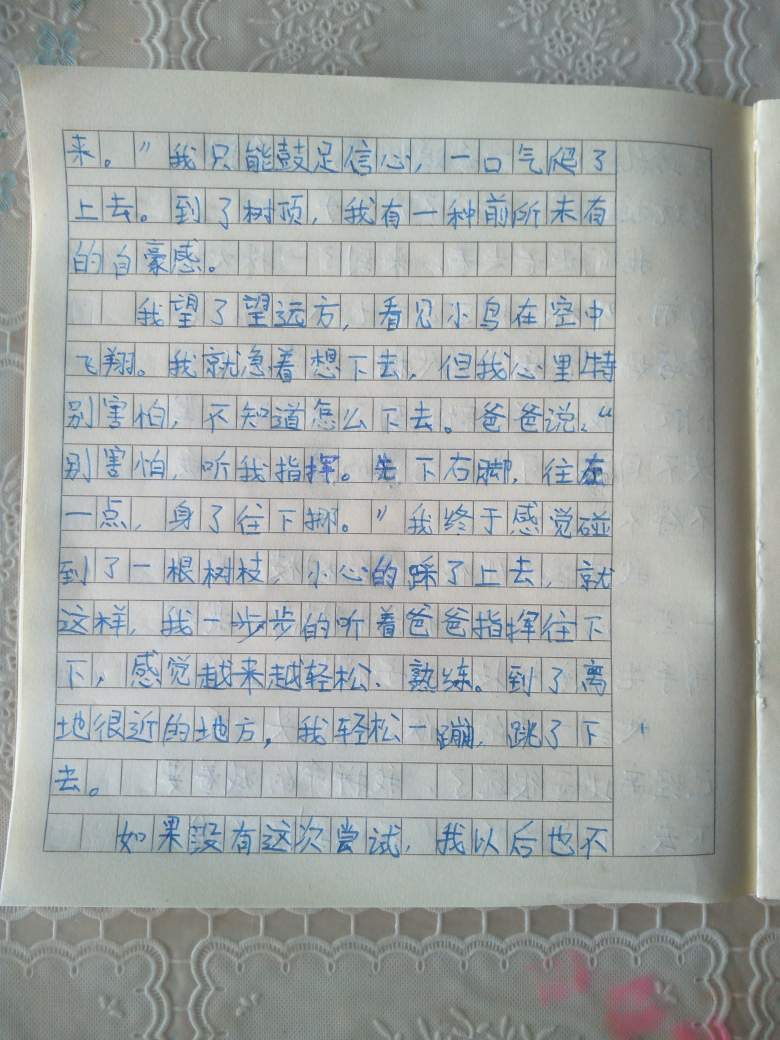 来。”我只能鼓足信心，一口气爬了
上去。到了树顶，我有一种前所未有
的自豪感。
我望了望远方，看见小鸟在空中
飞翔。我就急着想下去，但我心里特
别害怕，不知道怎么下去。爸爸说：“
别害怕，听我指挥。先下右脚，往左
一点，身子往下挪。”我终于感觉碰
到了一根树枝，小心的踩了上去，就
这样，我一步步的听着爸爸指挥往下
下，感觉越来越轻松、熟练。到了离
地很近的地方，我轻松一蹦，跳了下
去。
如果没有这次尝试，我以后也不